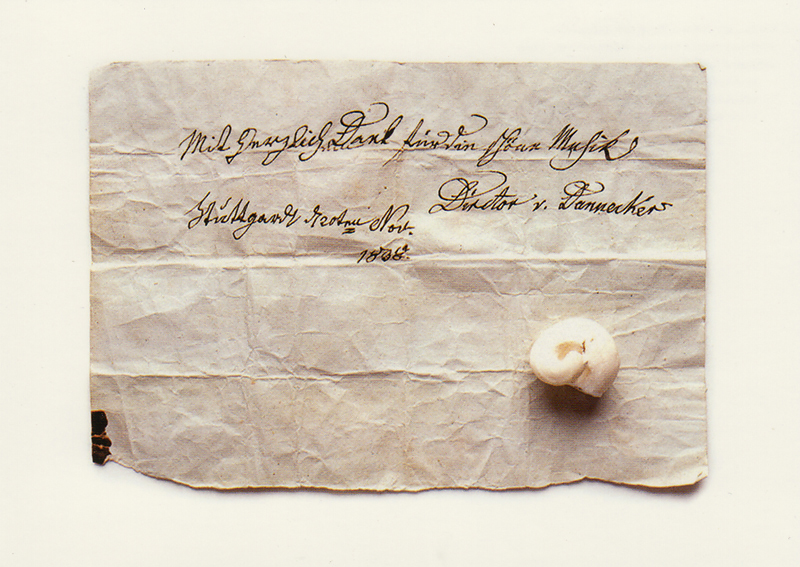 Mit Herzlich Dank für die schöne Musik
Director v. Dannecker
Stuttgardt d 20ten Nov.
1838.